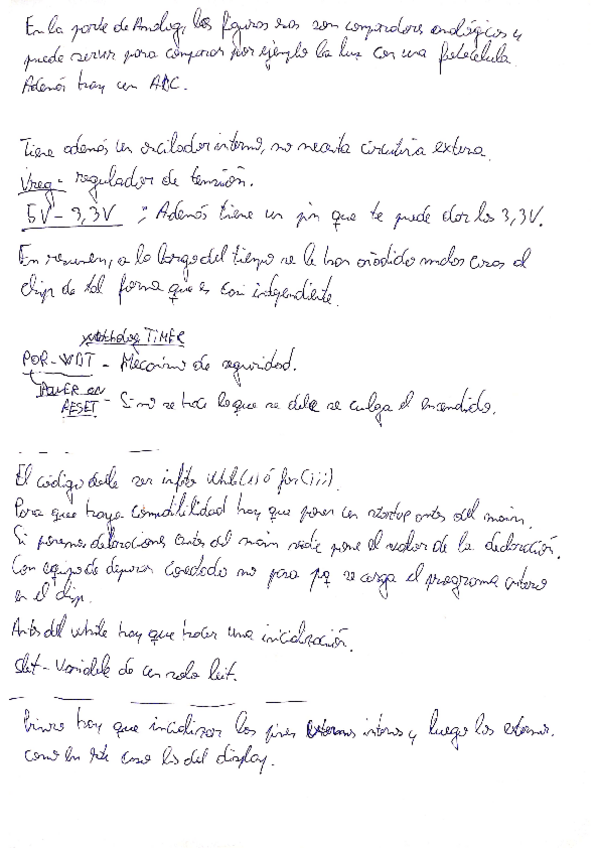 En la parte de Analog, las figuras esas son comparadores analógicos y
puede servir para comparar por ejemplo la luz con una fotocelula.
Además hay un ADC.
Tiene además un oscilador interno, no necesita circuitria externa.
Vreg - regulador de tensión.
5V - 3,3V ; Además tiene un pin que te puede dar los 3,3V.
En resumen, a lo largo del tiempo se le han añadido muchas cosas al
chip de tal forma que es casi independiente.
watchdog TIMER
POR - WDT - Mecanismo de seguridad.
POWER ON
RESET - Si no se hace lo que se debe se cuelga el encendido.
El código debe ser infito while(1) ó for(;;;).
Para que haya comodilidad hay que poner un startup antes del main.
Si ponemos declaraciones antes del main se pone el valor de la declaración.
Con equipo de depurar no pasa pq se carga el programa entero
en el chip.
Antes del while hay que hacer una inicialización.
Sbit - Variable de un solo bit.
hay que inicializar los pines internos y luego los externos.
como en este caso los del display.